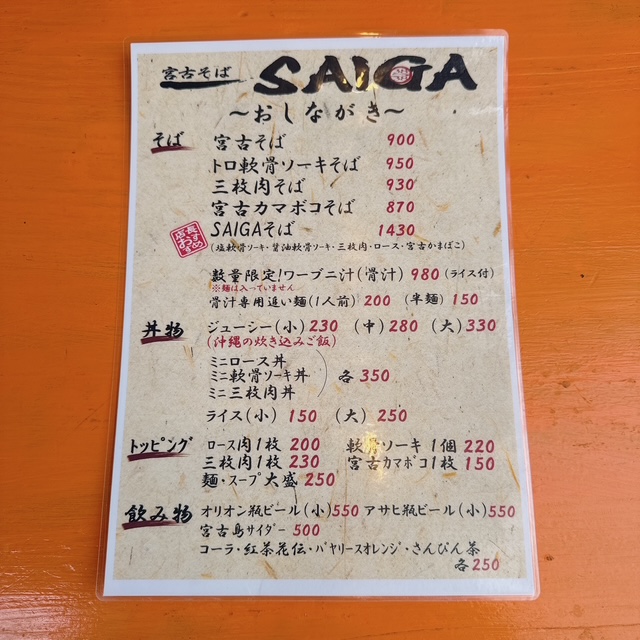 宮古そば SAIGA
〜おしながき〜
そば 宮古そば 900
トロ軟骨ソーキそば 950
三枚肉そば 930
宮古カマボコそば 870
店長おすすめ SAIGAそば 1430
(塩軟骨ソーキ・醤油軟骨ソーキ・三枚肉・ロース・宮古かまぼこ)
数量限定!ワーブニ汁(骨汁) 980 (ライス付)
※麺は入っていません
骨汁専用追い麺(1人前) 200 (半麺) 150
丼物 ジューシー(小)230 (中)280 (大)330
(沖縄の炊き込みご飯)
ミニロース丼
ミニ軟骨ソーキ丼 各350
ミニ三枚肉丼
ライス(小) 150 (大) 250
トッピング ロース肉1枚 200 軟骨ソーキ 1個 220
三枚肉1枚 230 宮古カマボコ1枚 150
麺・スープ大盛 250
飲み物 オリオン瓶ビール(小)550 アサヒ瓶ビール(小)550
宮古島サイダー 500
コーラ・紅茶花伝・バヤリースオレンジ・さんぴん茶
各250